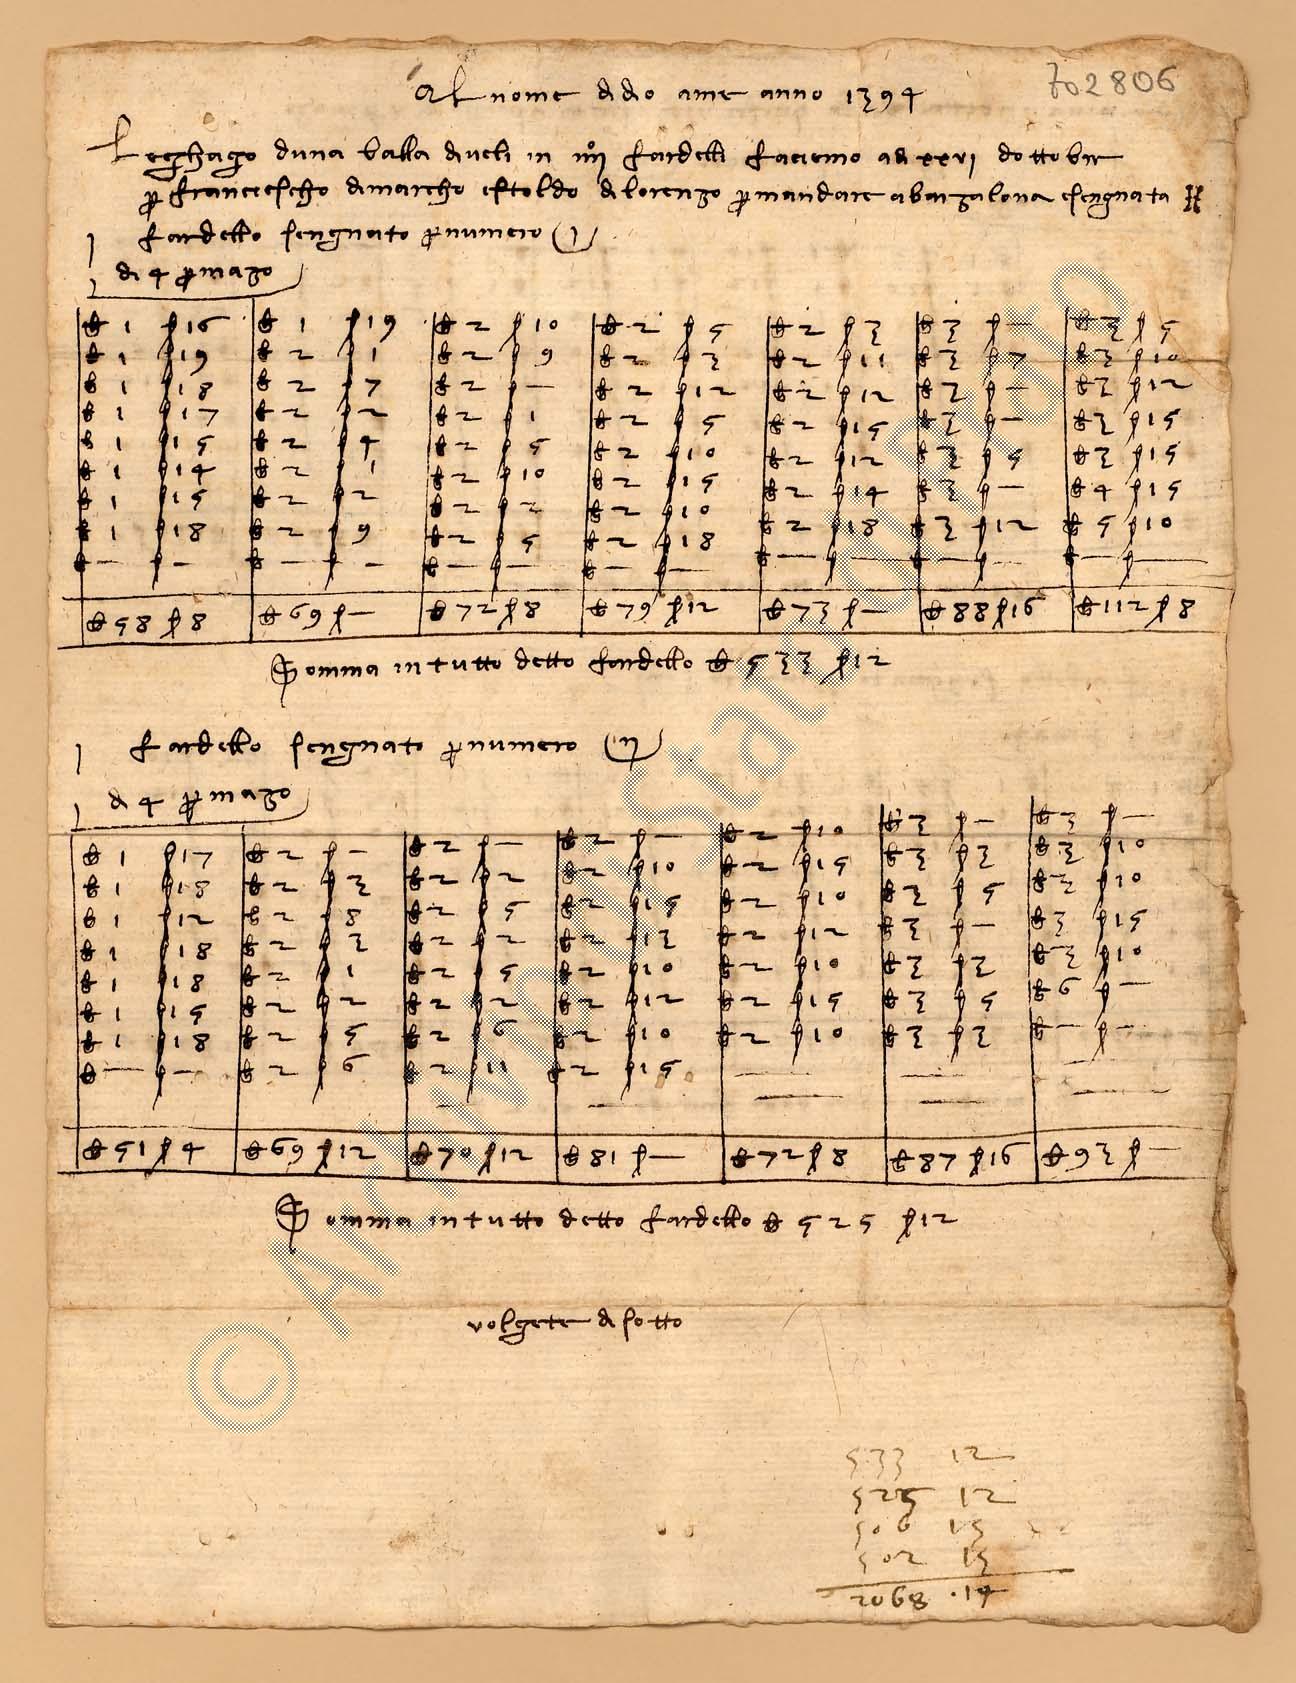 Al nome di dio ame anno 1394
702806
Leghagio duna balla di veli in iiij fardelli faciemo a dì xxvi dottobre
p franciescho dimarcho e stoldo di lorenzo p mandare a barzalona e sengnata
1 fardello sengnato p numero (1)
di 4 p mazo
lb 1 s 16 lb 1 s 19 lb 2 s 10 lb 2 s 5 lb 2 s 3 lb 3 s — lb 3 s 5
lb 1 s 19 lb 2 s 1 lb 2 s 9 lb 2 s 3 lb 2 s 11 lb 3 s 7 lb 3 s 10
lb 1 s 18 lb 2 s 7 lb 2 s — lb 2 s 12 lb 2 s 12 lb 3 s — lb 3 s 12
lb 1 s 17 lb 2 s 2 lb 2 s 1 lb 2 s 5 lb 2 s 15 lb 3 s — lb 3 s 15
lb 1 s 15 lb 2 s 4 lb 2 s 5 lb 2 s 10 lb 2 s 12 lb 3 s 5 lb 3 s 15
lb 1 s 14 lb 2 s 1 lb 2 s 10 lb 2 s 15 lb 2 s 14 lb 3 s — lb 4 s 15
lb 1 s 15 lb 2 s 2 lb 2 s 2 lb 2 s 10 lb 2 s 18 lb 3 s 12 lb 5 s 10
lb 1 s 18 lb 2 s 9 lb 2 s 5 lb 2 s 18 lb — s — lb — s — lb — s —
lb — s — lb — s — lb — s — lb — s —
lb 58 s 8 lb 69 s — lb 72 s 8 lb 79 s 12 lb 73 s — lb 88 s 16 lb 112 s 8
Somma in tutto detto fardello lb 533 s 12
1 fardello sengnato p numero (ij)
di 4 p mazo
lb 1 s 17 lb 2 s — lb 2 s — lb 2 s — lb 2 s 10 lb 3 s — lb 3 s —
lb 1 s 18 lb 2 s 3 lb 2 s 2 lb 2 s 10 lb 2 s 15 lb 3 s 3 lb 3 s 10
lb 1 s 12 lb 2 s 8 lb 2 s 5 lb 2 s 15 lb 2 s 10 lb 3 s 5 lb 3 s 10
lb 1 s 18 lb 2 s 3 lb 2 s 2 lb 2 s 13 lb 2 s 12 lb 3 s — lb 3 s 15
lb 1 s 18 lb 2 s 1 lb 2 s 5 lb 2 s 10 lb 2 s 10 lb 3 s 3 lb 3 s 10
lb 1 s 15 lb 2 s 2 lb 2 s 2 lb 2 s 12 lb 2 s 15 lb 3 s 5 lb 6 s —
lb 1 s 18 lb 2 s 5 lb 2 s 6 lb 2 s 10 lb 2 s 10 lb 3 s 3 lb — s —
lb — s — lb 2 s 6 lb 2 s 11 lb 2 s 15
lb 51 s 4 lb 69 s 12 lb 70 s 12 lb 81 s — lb 72 s 8 lb 87 s 16 lb 93 s —
Somma in tutto detto fardello lb 525 s 12
volgete di sotto
533 12
525 12
506 15
502 15
2068 .14
© Archivio di Stato di Prato